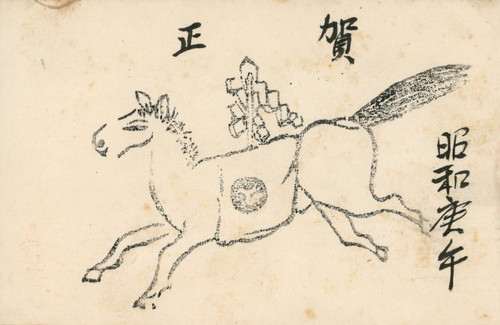 賀正
昭和庚午